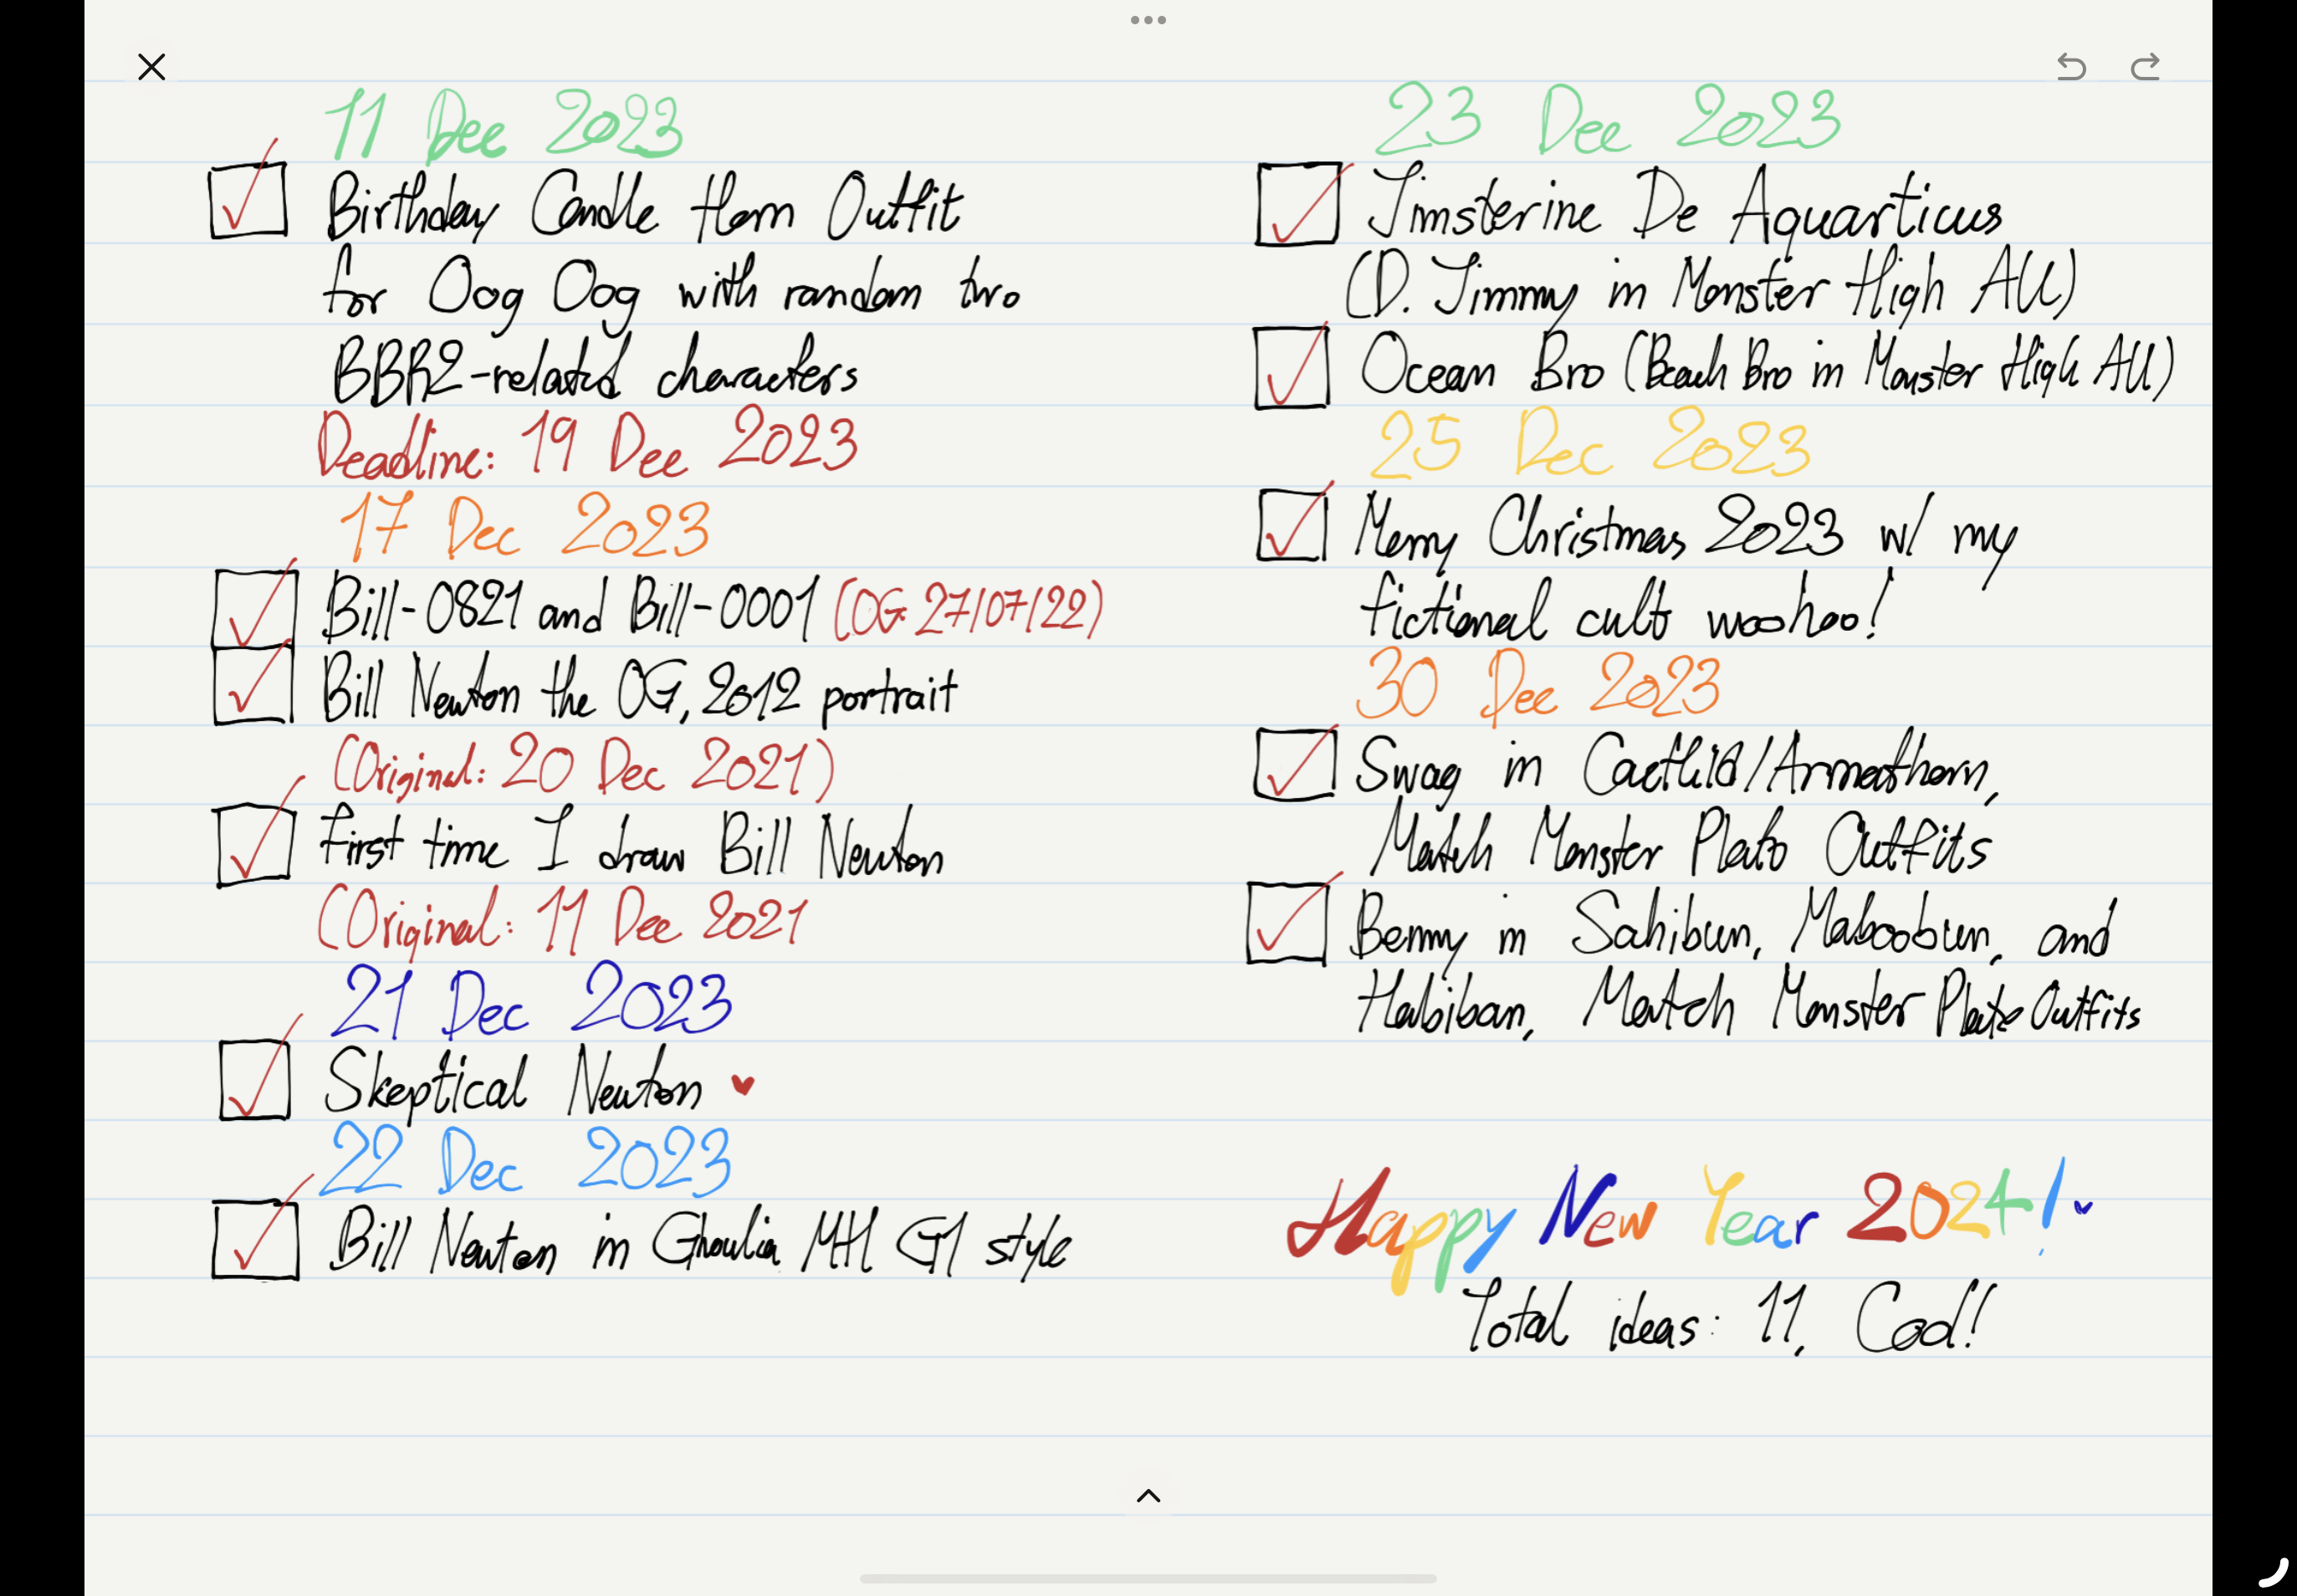 11 Dec 2023
Birthday Candle Horn Outfit
for Oog Oog with random two
BBR2-related characters
Deadline: 19 Dec 2023
17 Dec 2023
Bill-0821 and Bill-0001 (OG 27/07/22)
Bill Newton the OG, 2012 portrait
(Original: 20 Dec 2021)
First time I draw Bill Newton
(Original: 11 Dec 2021
21 Dec 2023
Skeptical Newton ♥
22 Dec 2023
Bill Newton in Ghoulia MH G1 style
23 Dec 2023
Jimsterine De Aquarticus
(D. Jimmy in Monster High AU)
Ocean Bro (Beach Bro in Monster High AU)
25 Dec 2023
Merry Christmas 2023 w/ my
fictional cult woohoo!
30 Dec 2023
Swag in /Armathorn,
Match Monster Plato Outfits
Benny in Sahibun, Maboobun, and
Habiban, Match Monster Plato Outfits
Happy New Year 2024! ♥
Total ideas: 11,